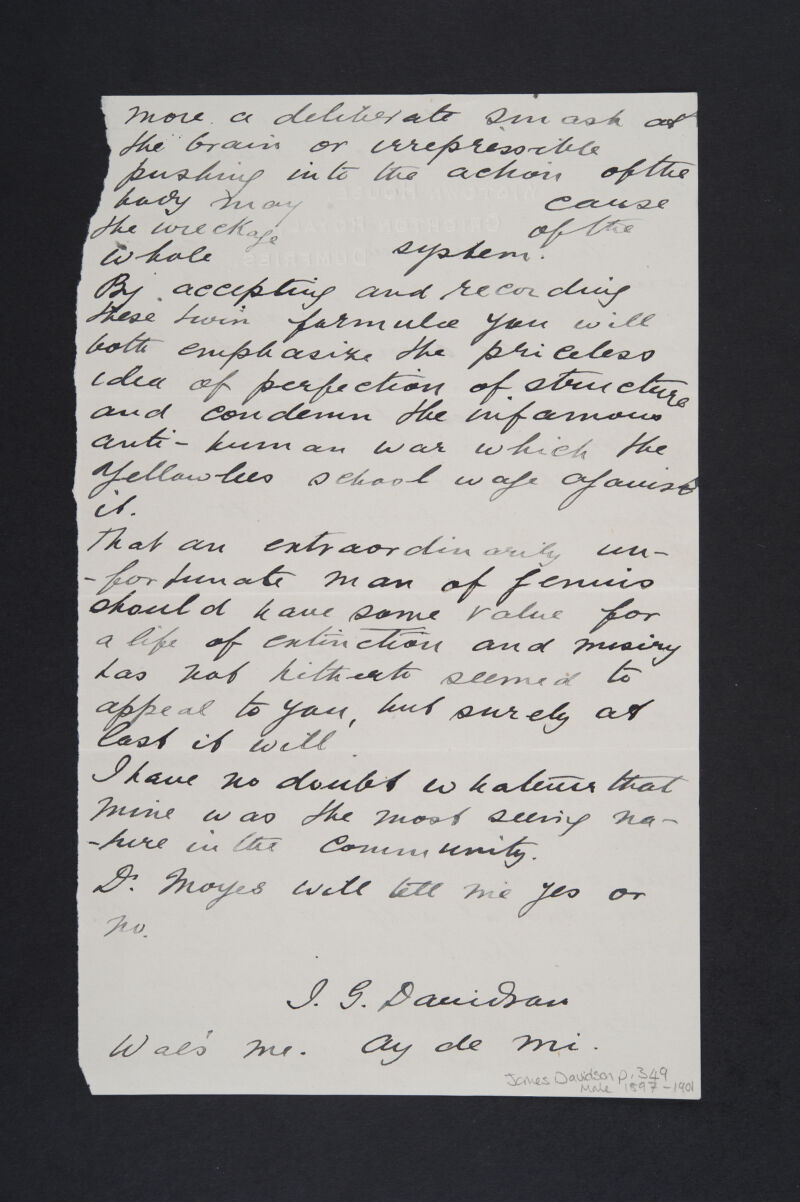 more a deliberate smash at
the brain or irrepressible
pushing into the action of the
body may cause
the wreckage of the
whole system.
By accepting and recording
these twin formulae you will
both emphasize the priceless
idea of perfection of structure
and condemn the infamous
anti-human war which the
Yellowlees school wage against
it.
That an extraordinarily un-
-fortunate man of genius
should have some value for
a life of extinction and misery
has not hitherto seemed to
appeal to you, but surely at
last it will
I have no doubt whatever that
mine was the most seeing na-
-ture in the community.
Dr. Moyes will tell me yes or
no.
J. G. Davidson
Wae's me. Ay de mi.
James Davidson p. 349
Male 1897-1901